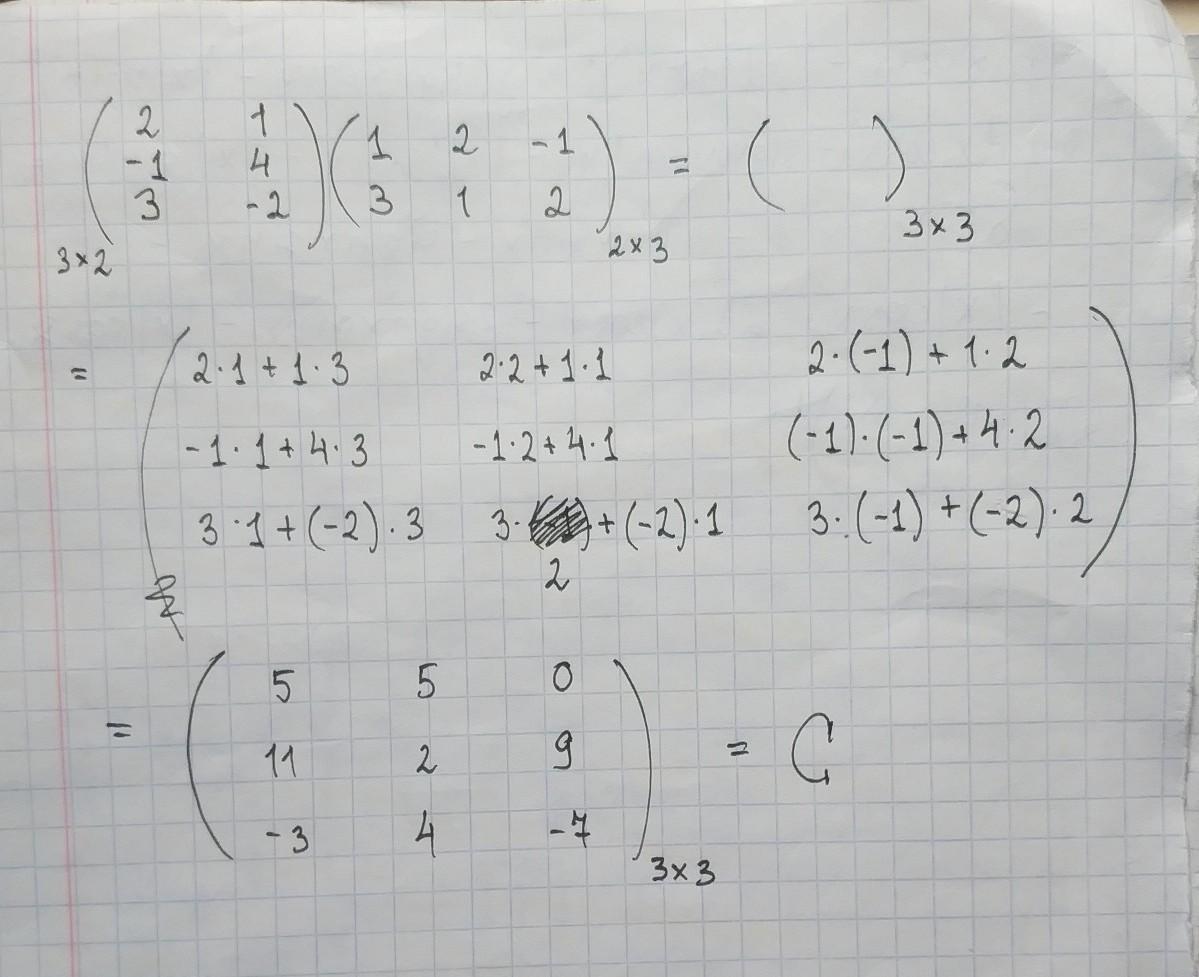 ( 2 1 ) ( 1 2 -1 ) = ( )
-1 4
3 -2 3 1 2
3×2 2×3 3×3
= ( 2·1 + 1·3 2·2 + 1·1 2·(-1) + 1·2 )
-1·1 + 4·3 -1·2 + 4·1 (-1)·(-1) + 4·2
3·1 + (-2)·3 3· + (-2)·1 3·(-1) + (-2)·2
2
= ( 5 5 0 ) = C
11 2 9
-3 4 -7
3×3